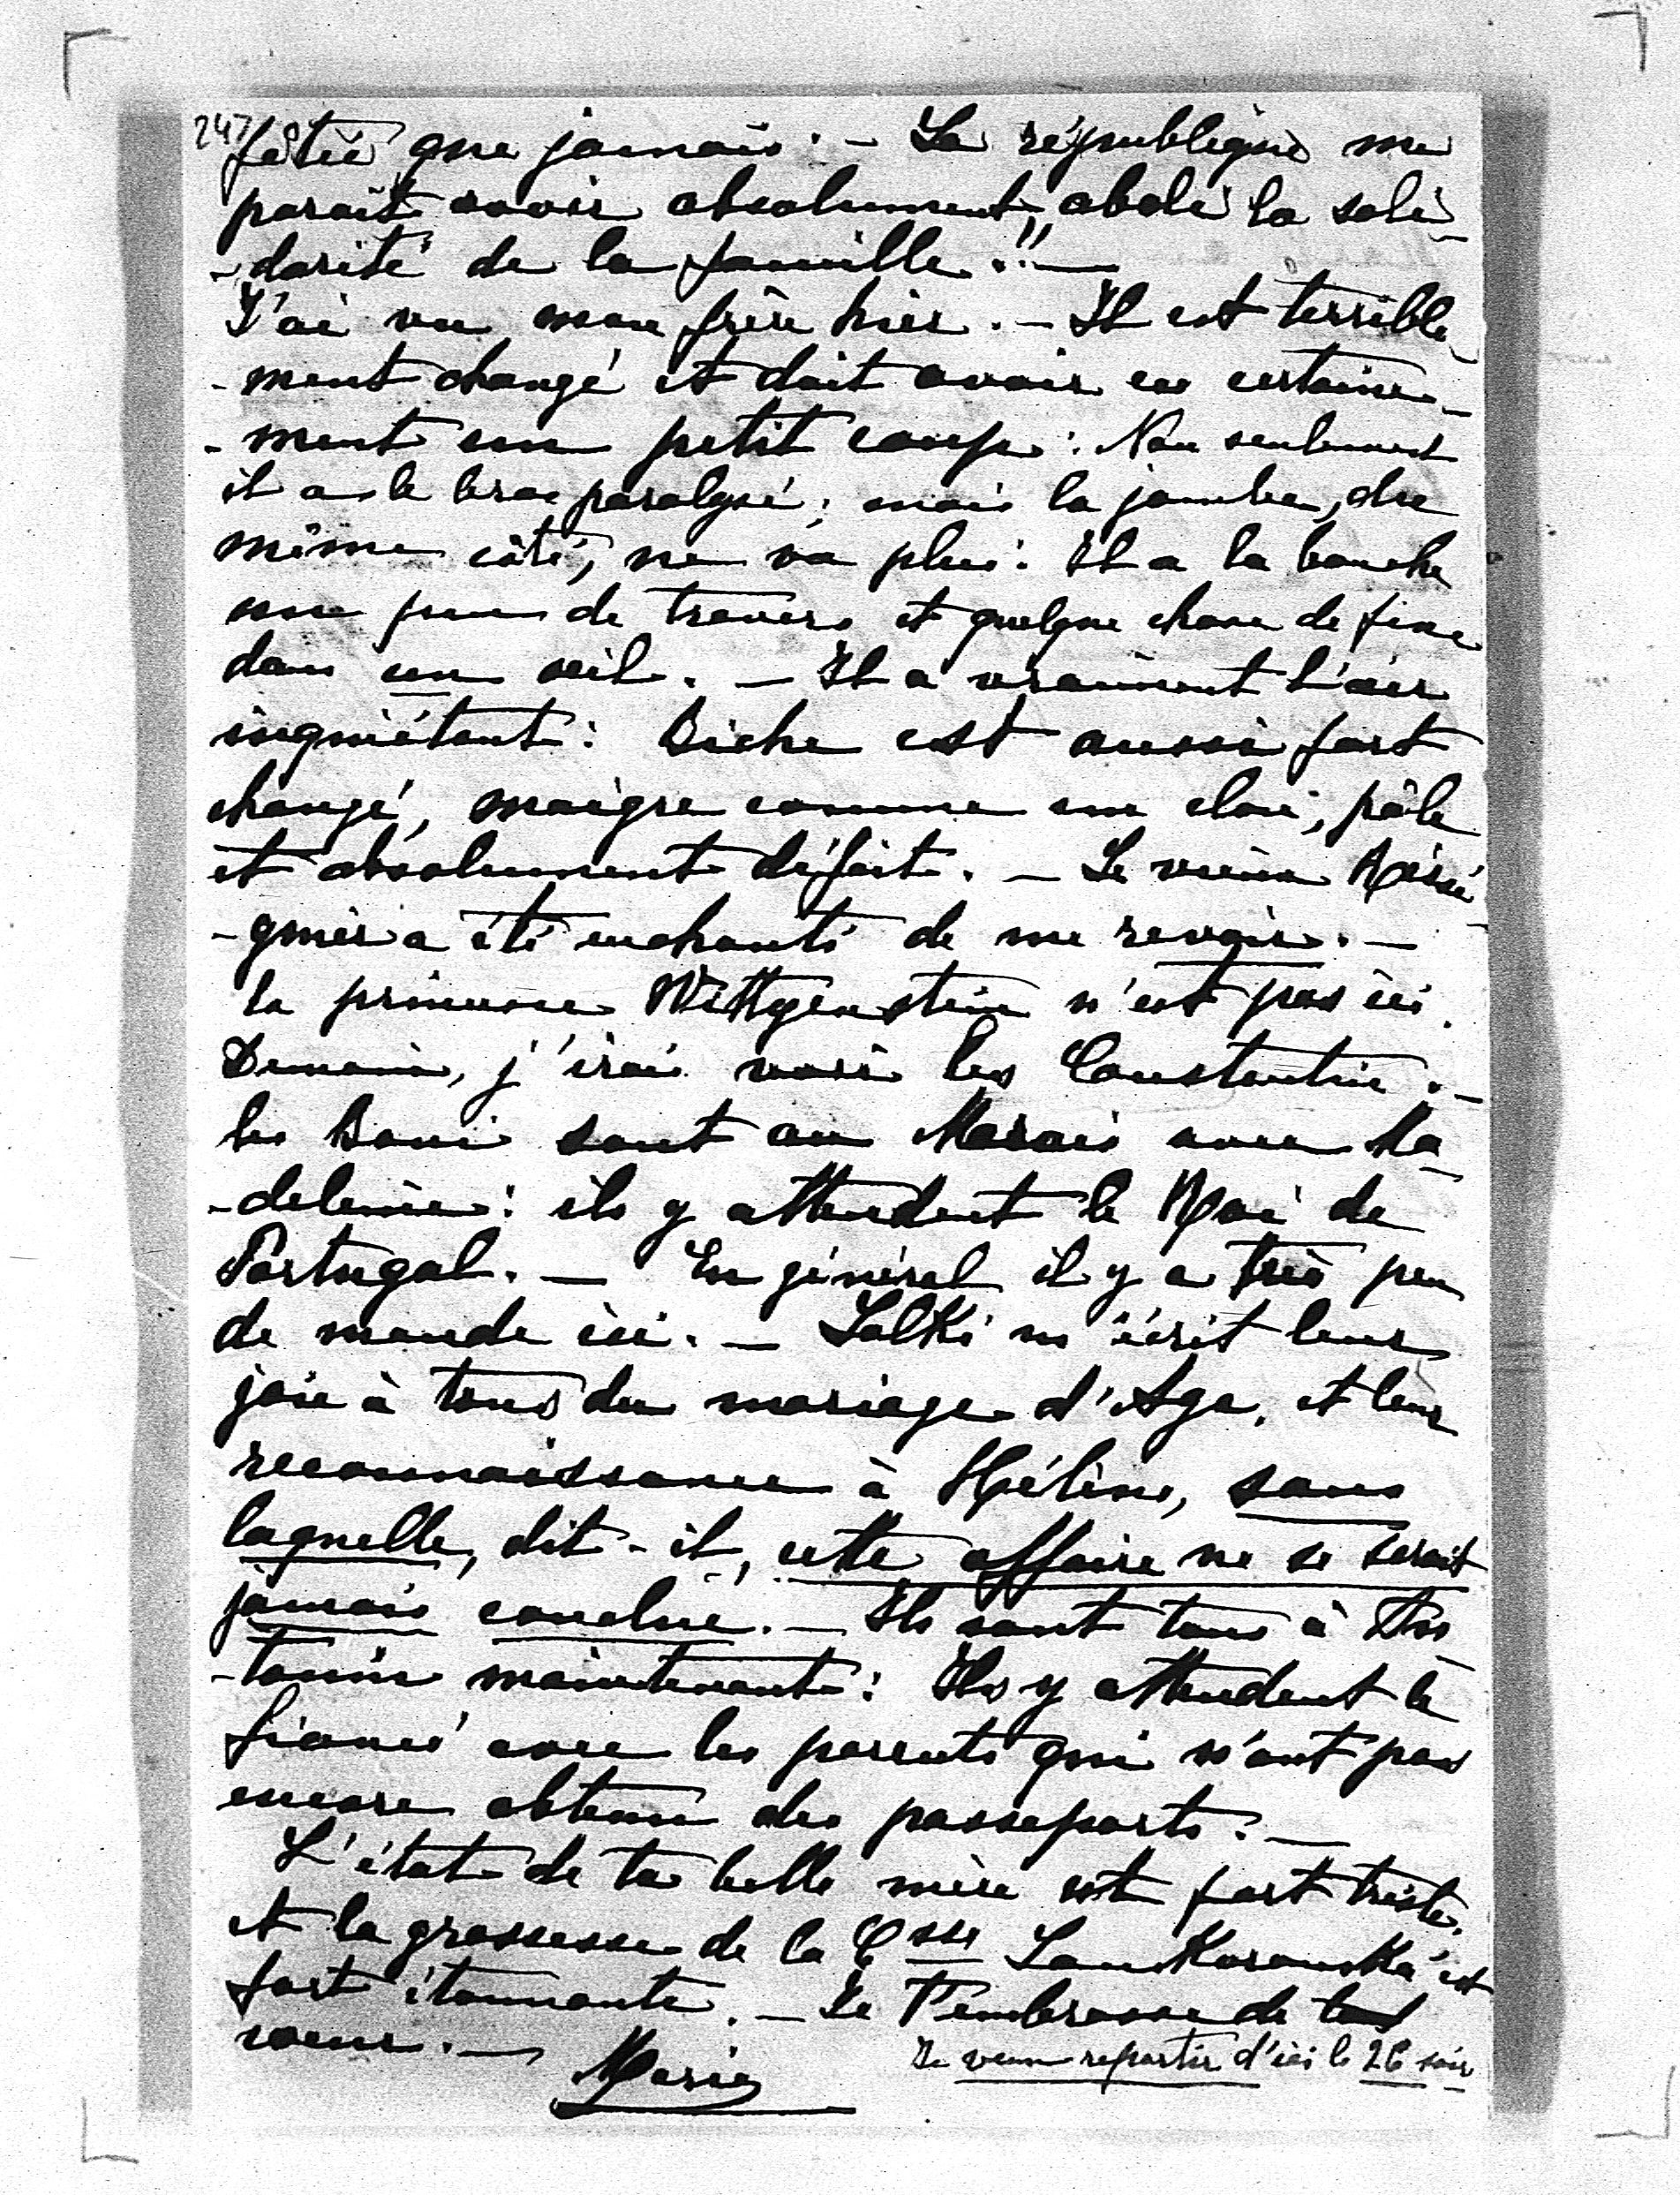 247
fêtée que jamais. — La république me
paraît avoir absolument aboli la soli-
-darité de la famille !! —
J'ai vu mon frère hier. — Il est terrible-
-ment changé et doit avoir eu certaine-
-ment un petit coup : Non seulement
il a le bras paralysé ; mais la jambe, du
même côté, ne va plus : Il a la bouche
un peu de travers et quelque chose de fixe
dans un œil. — Il a vraiment l'air
inquiétant : Biche est aussi fort
changé, maigre comme un clou, pâle
et absolument défait. — Le vieux Réssé-
-guier a été enchanté de me revoir. —
la princesse Wittgenstein n'est pas ici.
Demain, j'irai voir les Constantin. —
les Boni sont au Marais avec Ma-
-deleine : ils y attendent le Roi de
Portugal. — En général il y a très peu
de monde ici. — Salki m'écrit leur
joie à tous du mariage d'Aga, et leur
reconnaissance à Hélène, sans
laquelle, dit-il, cette affaire ne se serait
jamais conclue. — Ils sont tous à
maintenant : Ils y attendent le
fiancé avec les parents qui n'ont pas
encore obtenu des passeports. —
L'état de ta belle mère est fort triste,
et la grossesse de la Csse Lanckoronska est
fort étonnante. — Je t'embrasse de tout
cœur. —
Marie
Je veux repartir d'ici le 26 soir